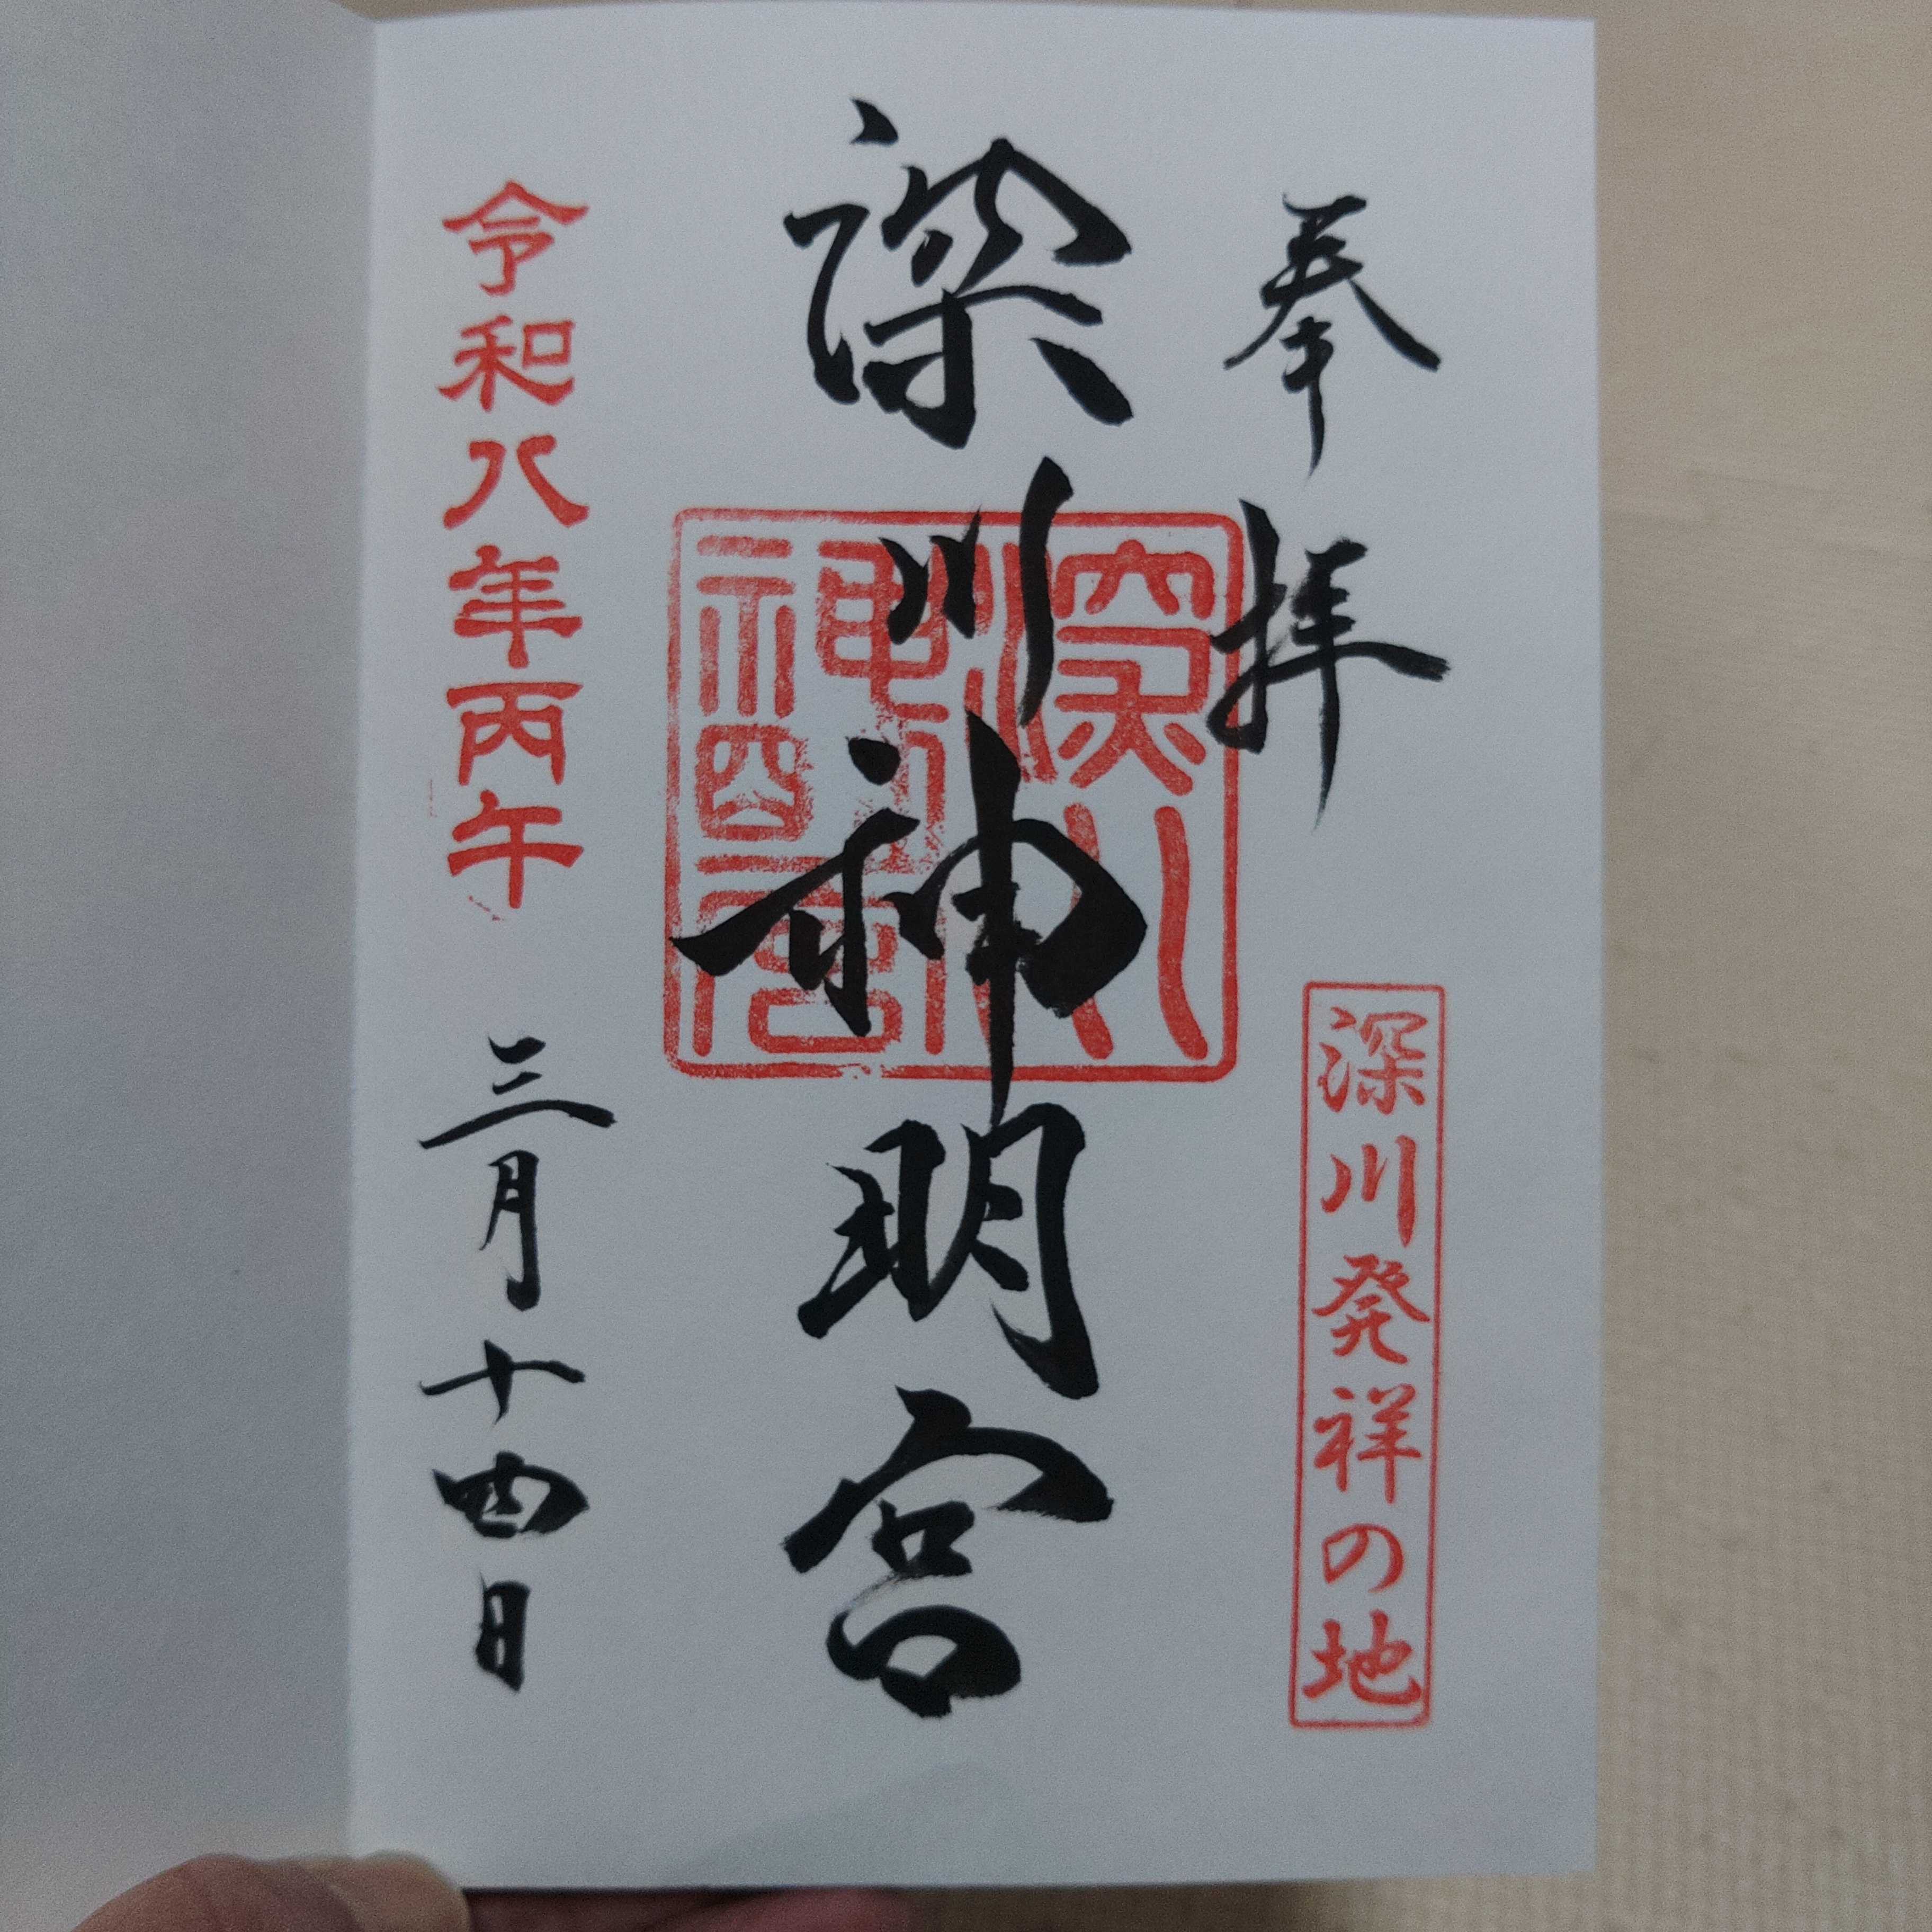 奉拝
深川発祥の地
深川神明宮
令和八年丙午
三月十四日